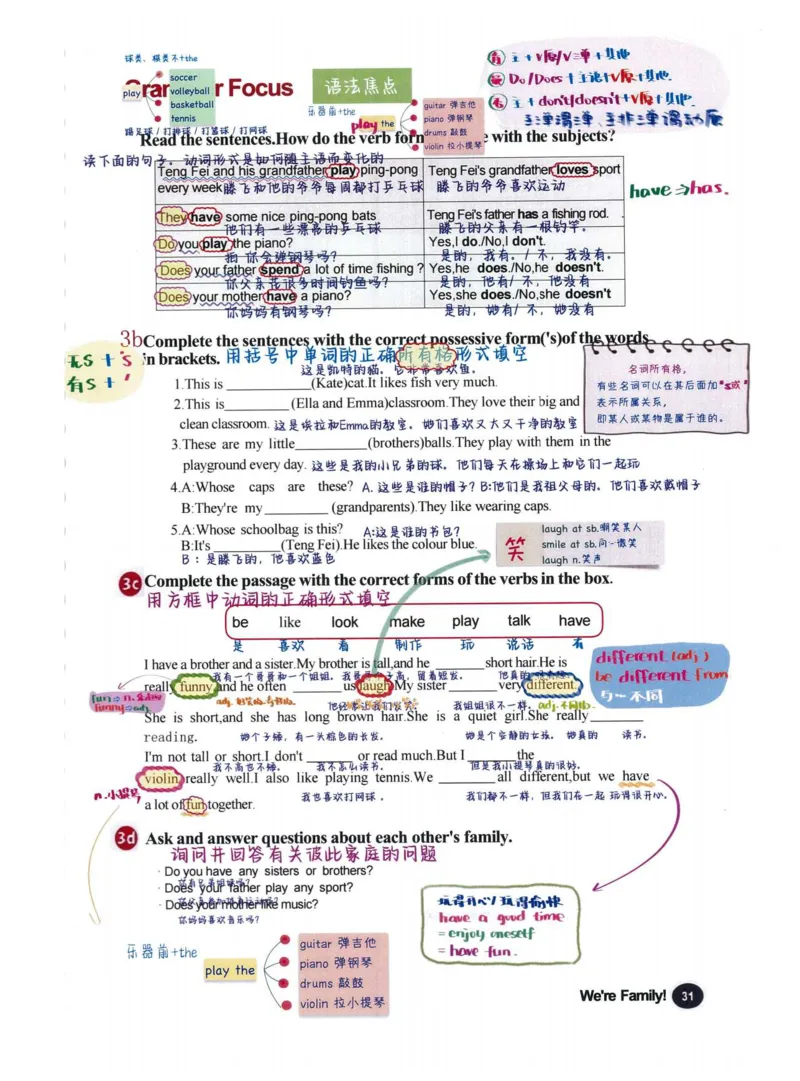 球类、棋类不+the
play
soccer
volleyball
basketball
tennis
踢足球/打排球/打篮球/打网球
Grammar Focus
语法焦点
乐器前+the
play the
guitar 弹吉他
piano 弹钢琴
drums 敲鼓
violin 拉小提琴
肯 主+V原/V三单+其他
疑 Do/Does+主语+V原+其他.
否 主+don't/doesn't+V原+其他.
主三谓三单、主非三单谓动原
Read the sentences.How do the verb with the subjects?
读下面的句子。动词形式是如何随主语而变化的
Teng Fei and his grandfather play ping-pong every week
滕飞和他的爷爷每周都打乒乓球
Teng Fei's grandfather loves sport
滕飞的爷爷喜欢运动
have⇒has.
They have some nice ping-pong bats
他们有一些漂亮的乒乓球
Teng Fei's father has a fishing rod.
滕飞的父亲有一根钓竿。
Do you play the piano?
你会弹钢琴吗?
Yes,I do./No,I don't.
是的，我有。/不，我没有。
Does your father spend a lot of time fishing ?
你父亲花很多时间钓鱼吗?
Yes,he does./No,he doesn't.
是的，他有/不，他没有
Does your mother have a piano?
你妈妈有钢琴吗?
Yes,she does./No,she doesn't
是的，她有/不，她没有
3b Complete the sentences with the correct possessive form('s)of the words in brackets.
用括号中单词的正确所有格形式填空
无s+'s
有s+'
名词所有格，
有些名词可以在其后面加"'s或'"
表示所属关系，
即某人或某物是属于谁的。
这是凯特的猫。它非常喜欢鱼。
1.This is ____________(Kate)cat.It likes fish very much.
2.This is_________(Ella and Emma)classroom.They love their big and
clean classroom. 这是埃拉和Emma的教室。她们喜欢又大又干净的教室
3.These are my little__________(brothers)balls.They play with them in the
playground every day. 这些是我的小兄弟的球。他们每天在操场上和它们一起玩
4.A:Whose caps are these? A.这些是谁的帽子?B:他们是我祖父母的。他们喜欢戴帽子
B:They're my _________ (grandparents).They like wearing caps.
5.A:Whose schoolbag is this? A:这是谁的书包?
B:It's __________(Teng Fei).He likes the colour blue.
B：是滕飞的，他喜欢蓝色
笑
laugh at sb.嘲笑某人
smile at sb.向…微笑
laugh n.笑声
3c Complete the passage with the correct forms of the verbs in the box.
用方框中动词的正确形式填空
be like look make play talk have
是 喜欢 看 制作 玩 说话 有
different (adj)
be different from
与…不同
I have a brother and a sister.My brother is tall,and he _______short hair.He is
我有一个哥哥和一个姐姐。
really funny,and he often ________ us laugh.My sister _______ very different.
adj. 
她不一样。 adj.不同的.
She is short,and she has long brown hair.She is a quiet girl.She really ________
reading. 她个子矮，有一头棕色的长发。 她是个安静的女孩。她真的 读书。
I'm not tall or short.I don't ________ or read much.But I _______ the
我不高也不矮。 我不怎么读书。 但是我小提琴真的很好。
violin really well.I also like playing tennis.We ________ all different,but we have
n.小提琴
我也喜欢打网球。 我们都不一样，但我们在一起 玩得很开心。
a lot of fun together.
3d Ask and answer questions about each other's family.
询问并回答有关彼此家庭的问题
· Do you have any sisters or brothers?
· Does your father play any sport?
· Does your mother like music?
你妈妈喜欢音乐吗?
玩得开心/玩得愉快
have a good time
=enjoy oneself
=have fun.
乐器前+the
play the
guitar 弹吉他
piano 弹钢琴
drums 敲鼓
violin 拉小提琴
We're Family! 31